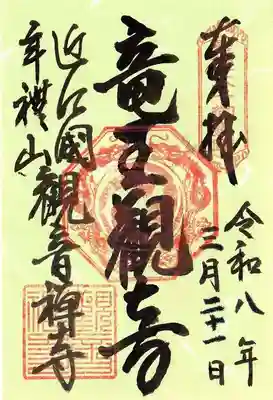 奉拝
令和八年
三月二十一日
竜王觀音
近江國觀音禅寺
牟禮山